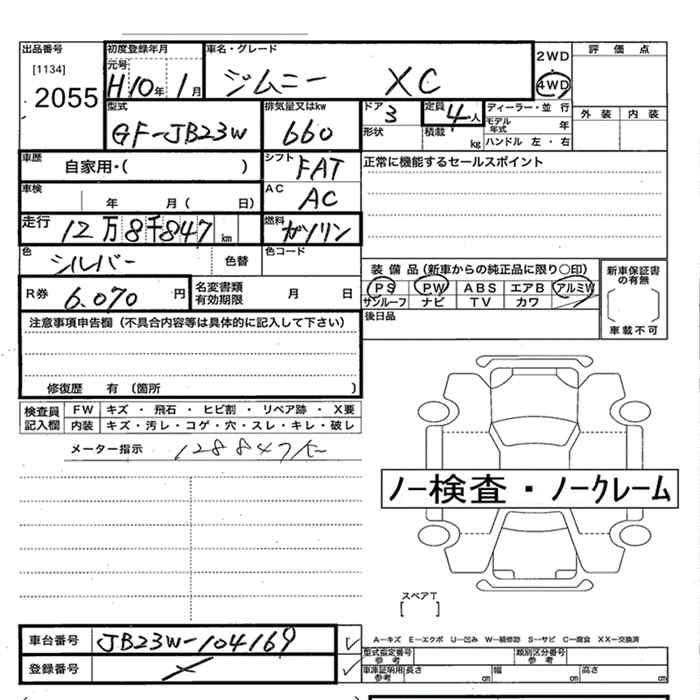 出品番号 初度登録年月 車名・グレード 2WD 評価点
[1134] 元号 H10年 1月 ジムニー XC 4WD
2055
型式 排気量又はkw ドア 3 定員 4人 ディーラー・並行 外装 内装
GF-JB23W 660 形状 積載 kg モデル年式 年
ハンドル 左・右
車歴 自家用・( ) シフト FAT 正常に機能するセールスポイント
車検 年 月( 日) AC AC
走行 12万8千847km 燃料 ガソリン
色 シルバー 色替 色コード
装備品(新車からの純正品に限り○印) 新車保証書の有無
R券 6.070円 名変書類有効期限 月 日 PS PW ABS エアB アルミW
サンルーフ ナビ TV カワ
注意事項申告欄(不具合内容等は具体的に記入して下さい) 後日品 車載不可
修復歴 有(箇所 )
検査員記入欄 FW キズ・飛石・ヒビ割・リペア跡・X要
内装 キズ・汚レ・コゲ・穴・スレ・キレ・破レ
メーター指示 128847K
ノー検査・ノークレーム
スペアT
[ ]
車台番号 JB23W-104169
A－キズ E－エクボ U－凹み W－補修跡 S－サビ C－腐食 XX－交換済
登録番号
型式指定番号 参考 類別区分番号 参考
車庫証明用 参考 長さ cm 幅 cm 高さ cm